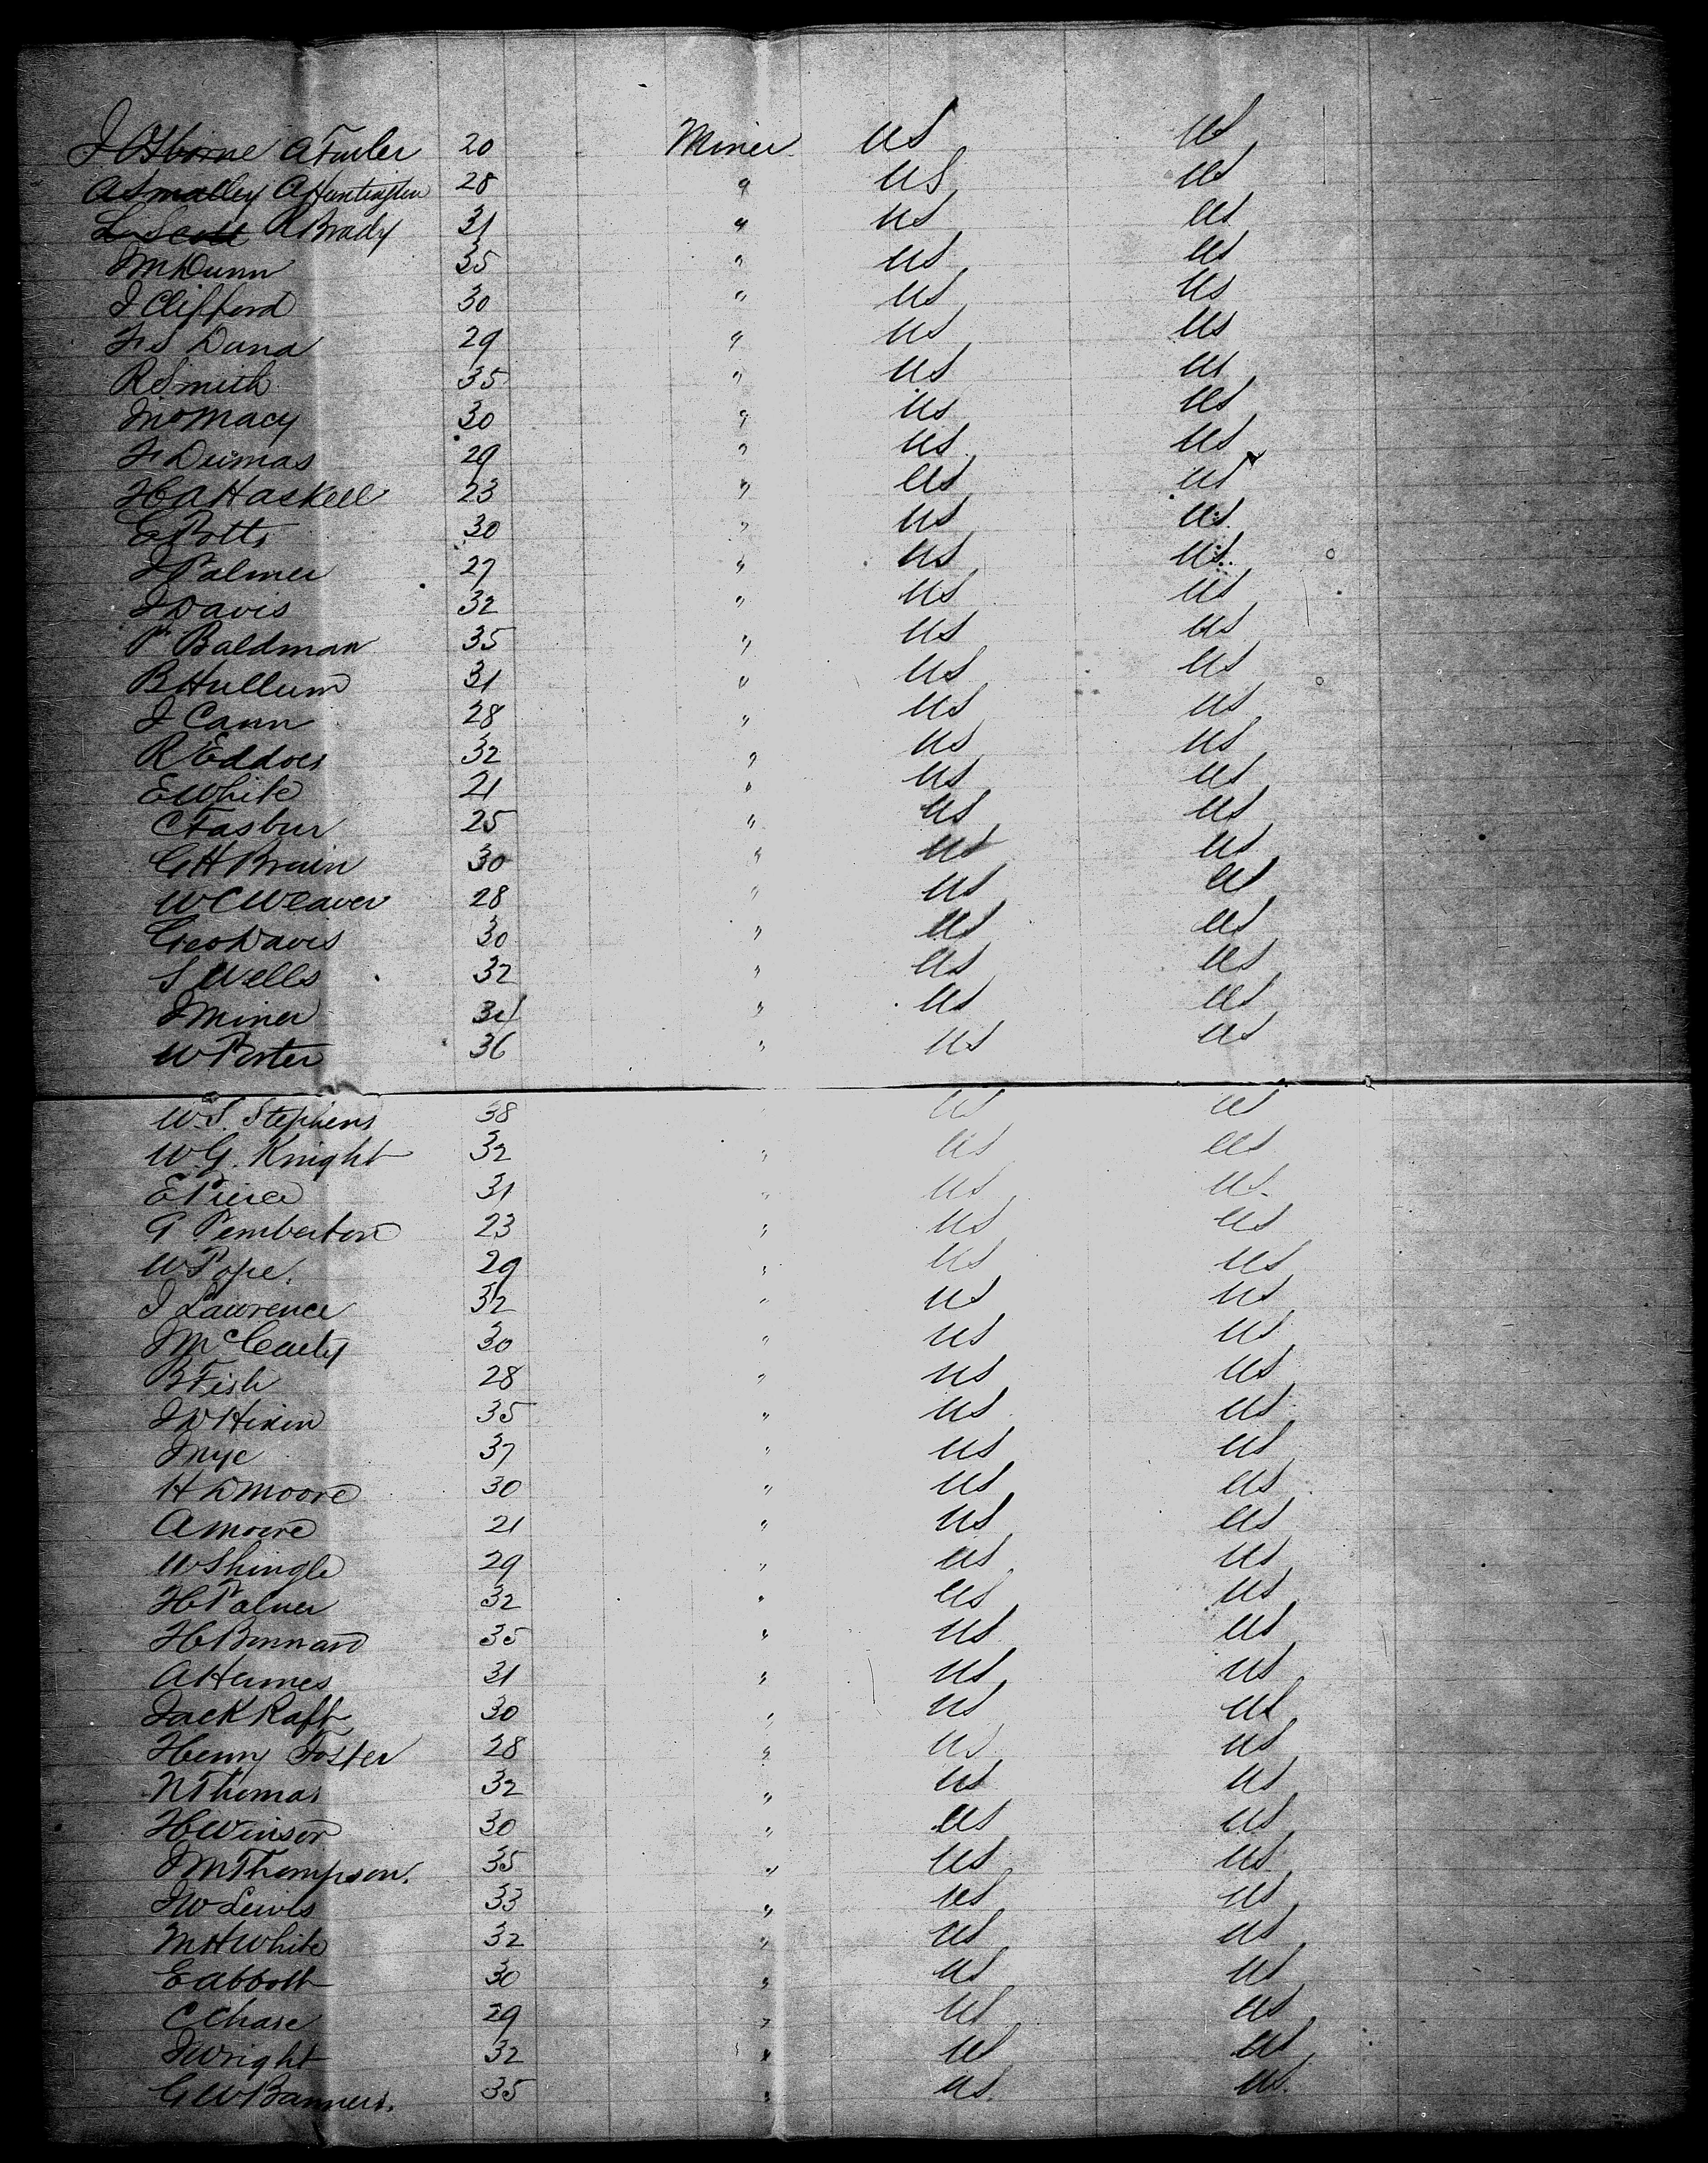 J Osborne A Fowler 20 Miner US US
A Smalley A Huntington 28 " US US
L Scott R Brady 31 " US US
J M Dunn 35 " US US
J Clifford 30 " US US
F S Dana 29 " US US
R Smith 35 " US US
Jno Macy 30 " US US
F Dumas 29 " US US
H A Haskell 23 " US US
E Potts 30 " US US
J Palmer 27 " US US
J Davis 32 " US US
P Baldman 35 " US US
B Hullum 31 " US US
J Cann 28 " US US
R Eddoes 32 " US US
E White 21 " US US
C Fasbur 25 " US US
G H Brain 30 " US US
W C Weaver 28 " US US
Geo Davis 30 " US US
S Wells 32 " US US
J Miner 34 " US US
W Porter 36 " US US
W. S. Stephens 38 " US US
W. G. Knight 32 " US US
E Pierce 31 " US US
G Pemberton 23 " US US
W Pope. 29 " US US
J Lawrence 32 " US US
J McCarty 30 " US US
B Fish 28 " US US
J W Hixin 35 " US US
J Nye 37 " US US
H D Moore 30 " US US
A Moore 21 " US US
W Shingle 29 " US US
H Palmer 32 " US US
H Bonnard 35 " US US
A Humes 31 " US US
Jack Raft 30 " US US
Henry Foster 28 " US US
N Thomas 32 " US US
H Winsor 30 " US US
J M Thompson. 35 " US US
J W Lewis 33 " US US
M H White 32 " US US
E Abbott 30 " US US
C Chase 29 " US US
J Wright 32 " US US
G W Banners. 35 " US US